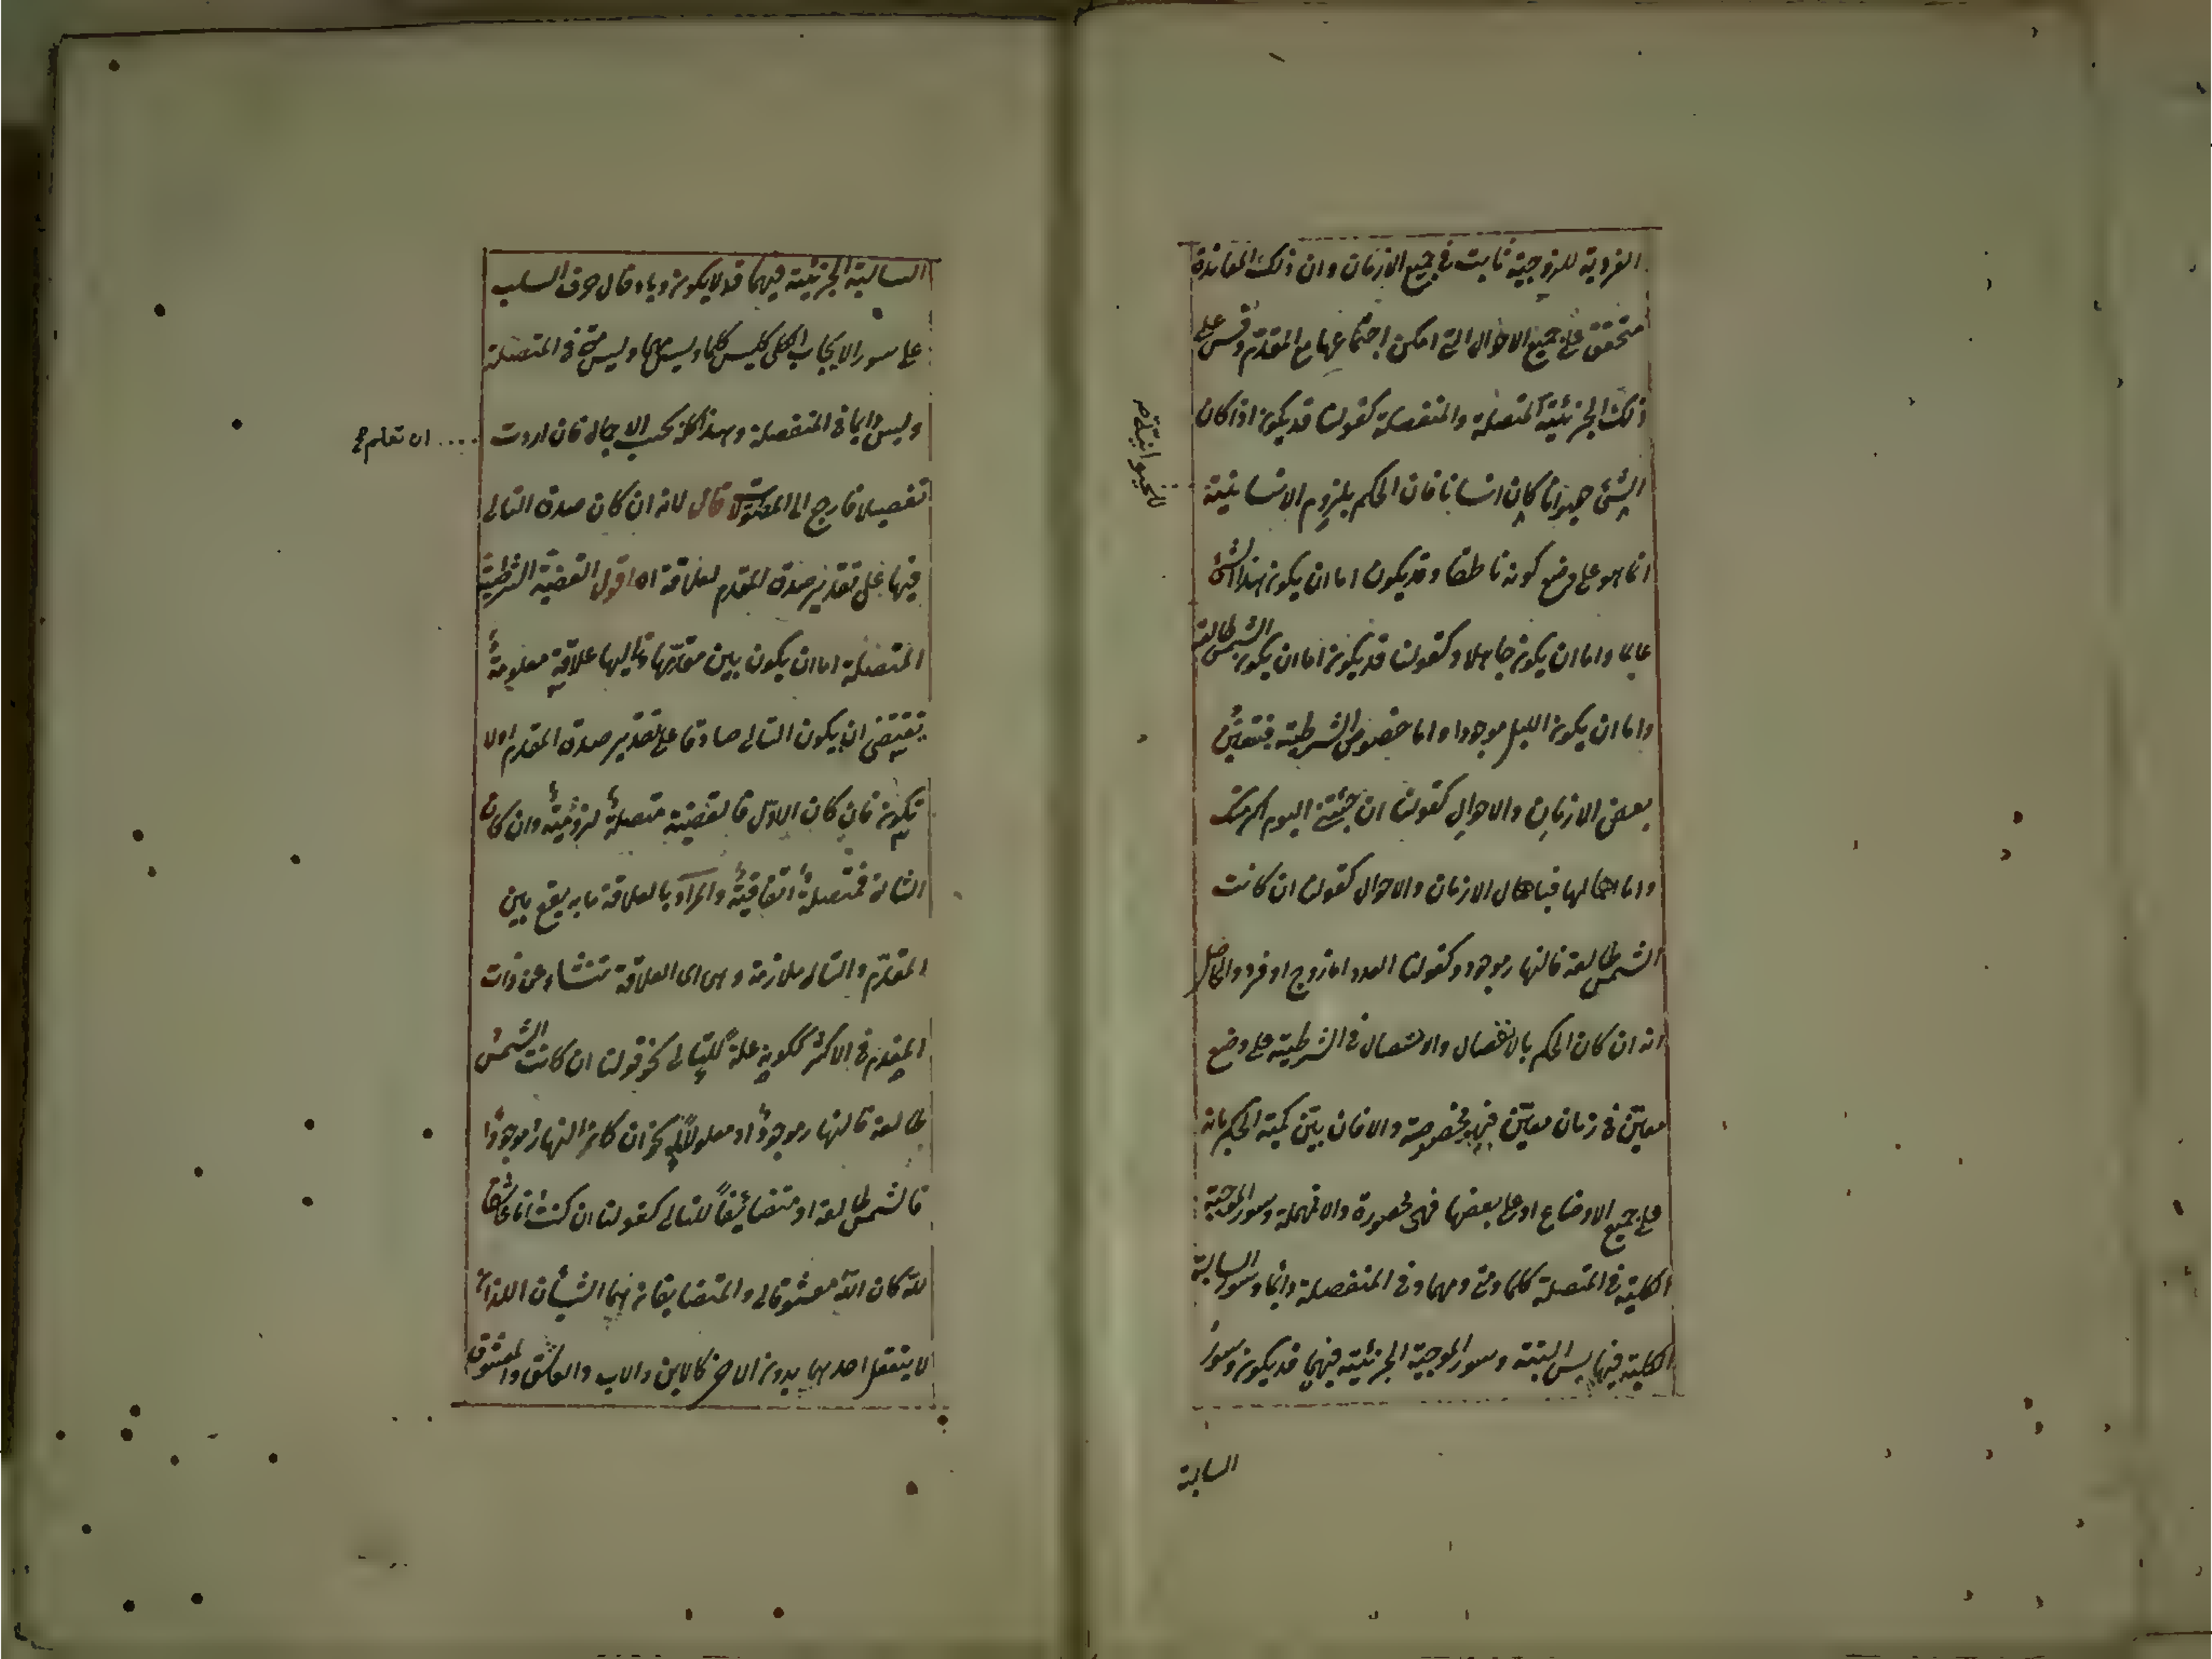 الفردية للزوجية ثابت في جميع الازمان وان ذلك المعاندة
متحقق في جميع الاحوال التي امكن اجتماعها مع المقدم وقس على
ذلك الجزئية المتصلة والمنفصلة كقولنا قد يكون اذا كان
الشئ حيوانا كان انسانا فان الحكم بلزوم الانسانية
للحيوانية
انما هو على وضع كونه ناطقا وقد يكون اما ان يكون هذا الشئ
عالما واما ان يكون جاهلا وكقولنا قد يكون اما ان يكون الشمس طالعة
واما ان يكون الليل موجودا واما خصوص الشرطية فبتعين
بعض الازمان والاحوال كقولنا ان جئتني اليوم اكرمتك
واما اهمالها فباهمال الازمان والاحوال كقولنا ان كانت
الشمس طالعة فالنهار موجود وكقولنا العدد اما زوج او فرد والحاصل
انه ان كان الحكم بالانفصال والاتصال في الشرطية على وضع
معين في زمان معين فهي مخصوصة والا فان بين كمية الحكم بانه
على جميع الاوضاع او على بعضها فهي محصورة والا فمهملة وسور الموجبة
الكلية في المتصلة كلما ومتى ومهما وفي المنفصلة دائما وسور السالبة
الكلية فيهما ليس البتة وسور الموجبة الجزئية فيهما قد يكون وسور
السالبة
السالبة الجزئية فيهما قد لا يكون وبادخال حرف السلب
على سور الايجاب الكلي كليس كلما وليس مهما وليس متى في المتصلة
وليس دائما في المنفصلة وهذا كله بحسب الاجمال فان اردت
ان تعلم
تفصيلا فارجع الى المطولات قال لانه ان كان صدق التالي
فيها على تقدير صدق المقدم لعلاقة اه اقول القضية الشرطية
المتصلة اما ان يكون بين مقدمها وتاليها علاقة معلومة
يقتضي ان يكون التالي صادقا على تقدير صدق المقدم او لا
يكون فان كان الاول فالقضية متصلة لزومية وان كان
الثاني فمتصلة اتفاقية والمراد بالعلاقة ما به يقع بين
المقدم والتالي ملازمة وهي اي العلاقة تنشاء عن ذات
المقدم في الاكثر ككونه علة للتالي نحو قولنا ان كانت الشمس
طالعة فالنهار موجود او معلولا له نحو ان كان النهار موجودا
فالشمس طالعة او متضائفا للتالي كقولنا ان كنت انا عاشقا
لله كان الله معشوقا لي والمتضايفان هما الشيئان اللذان
لا يتعقل احدهما بدون الاخر كالابن والاب والعاشق والمعشوق